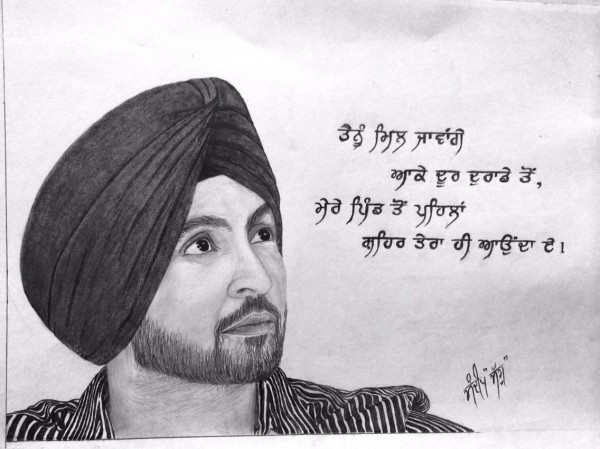 ਤੈਨੂੰ ਮਿਲ ਜਾਵਾਂਗੇ
ਆਕੇ ਦੂਰ ਦੁਰਾਡੇ ਤੋਂ,
ਮੇਰੇ ਪਿੰਡ ਤੋਂ ਪਹਿਲਾਂ
ਸ਼ਹਿਰ ਤੇਰਾ ਹੀ ਆਉਂਦਾ ਏ।